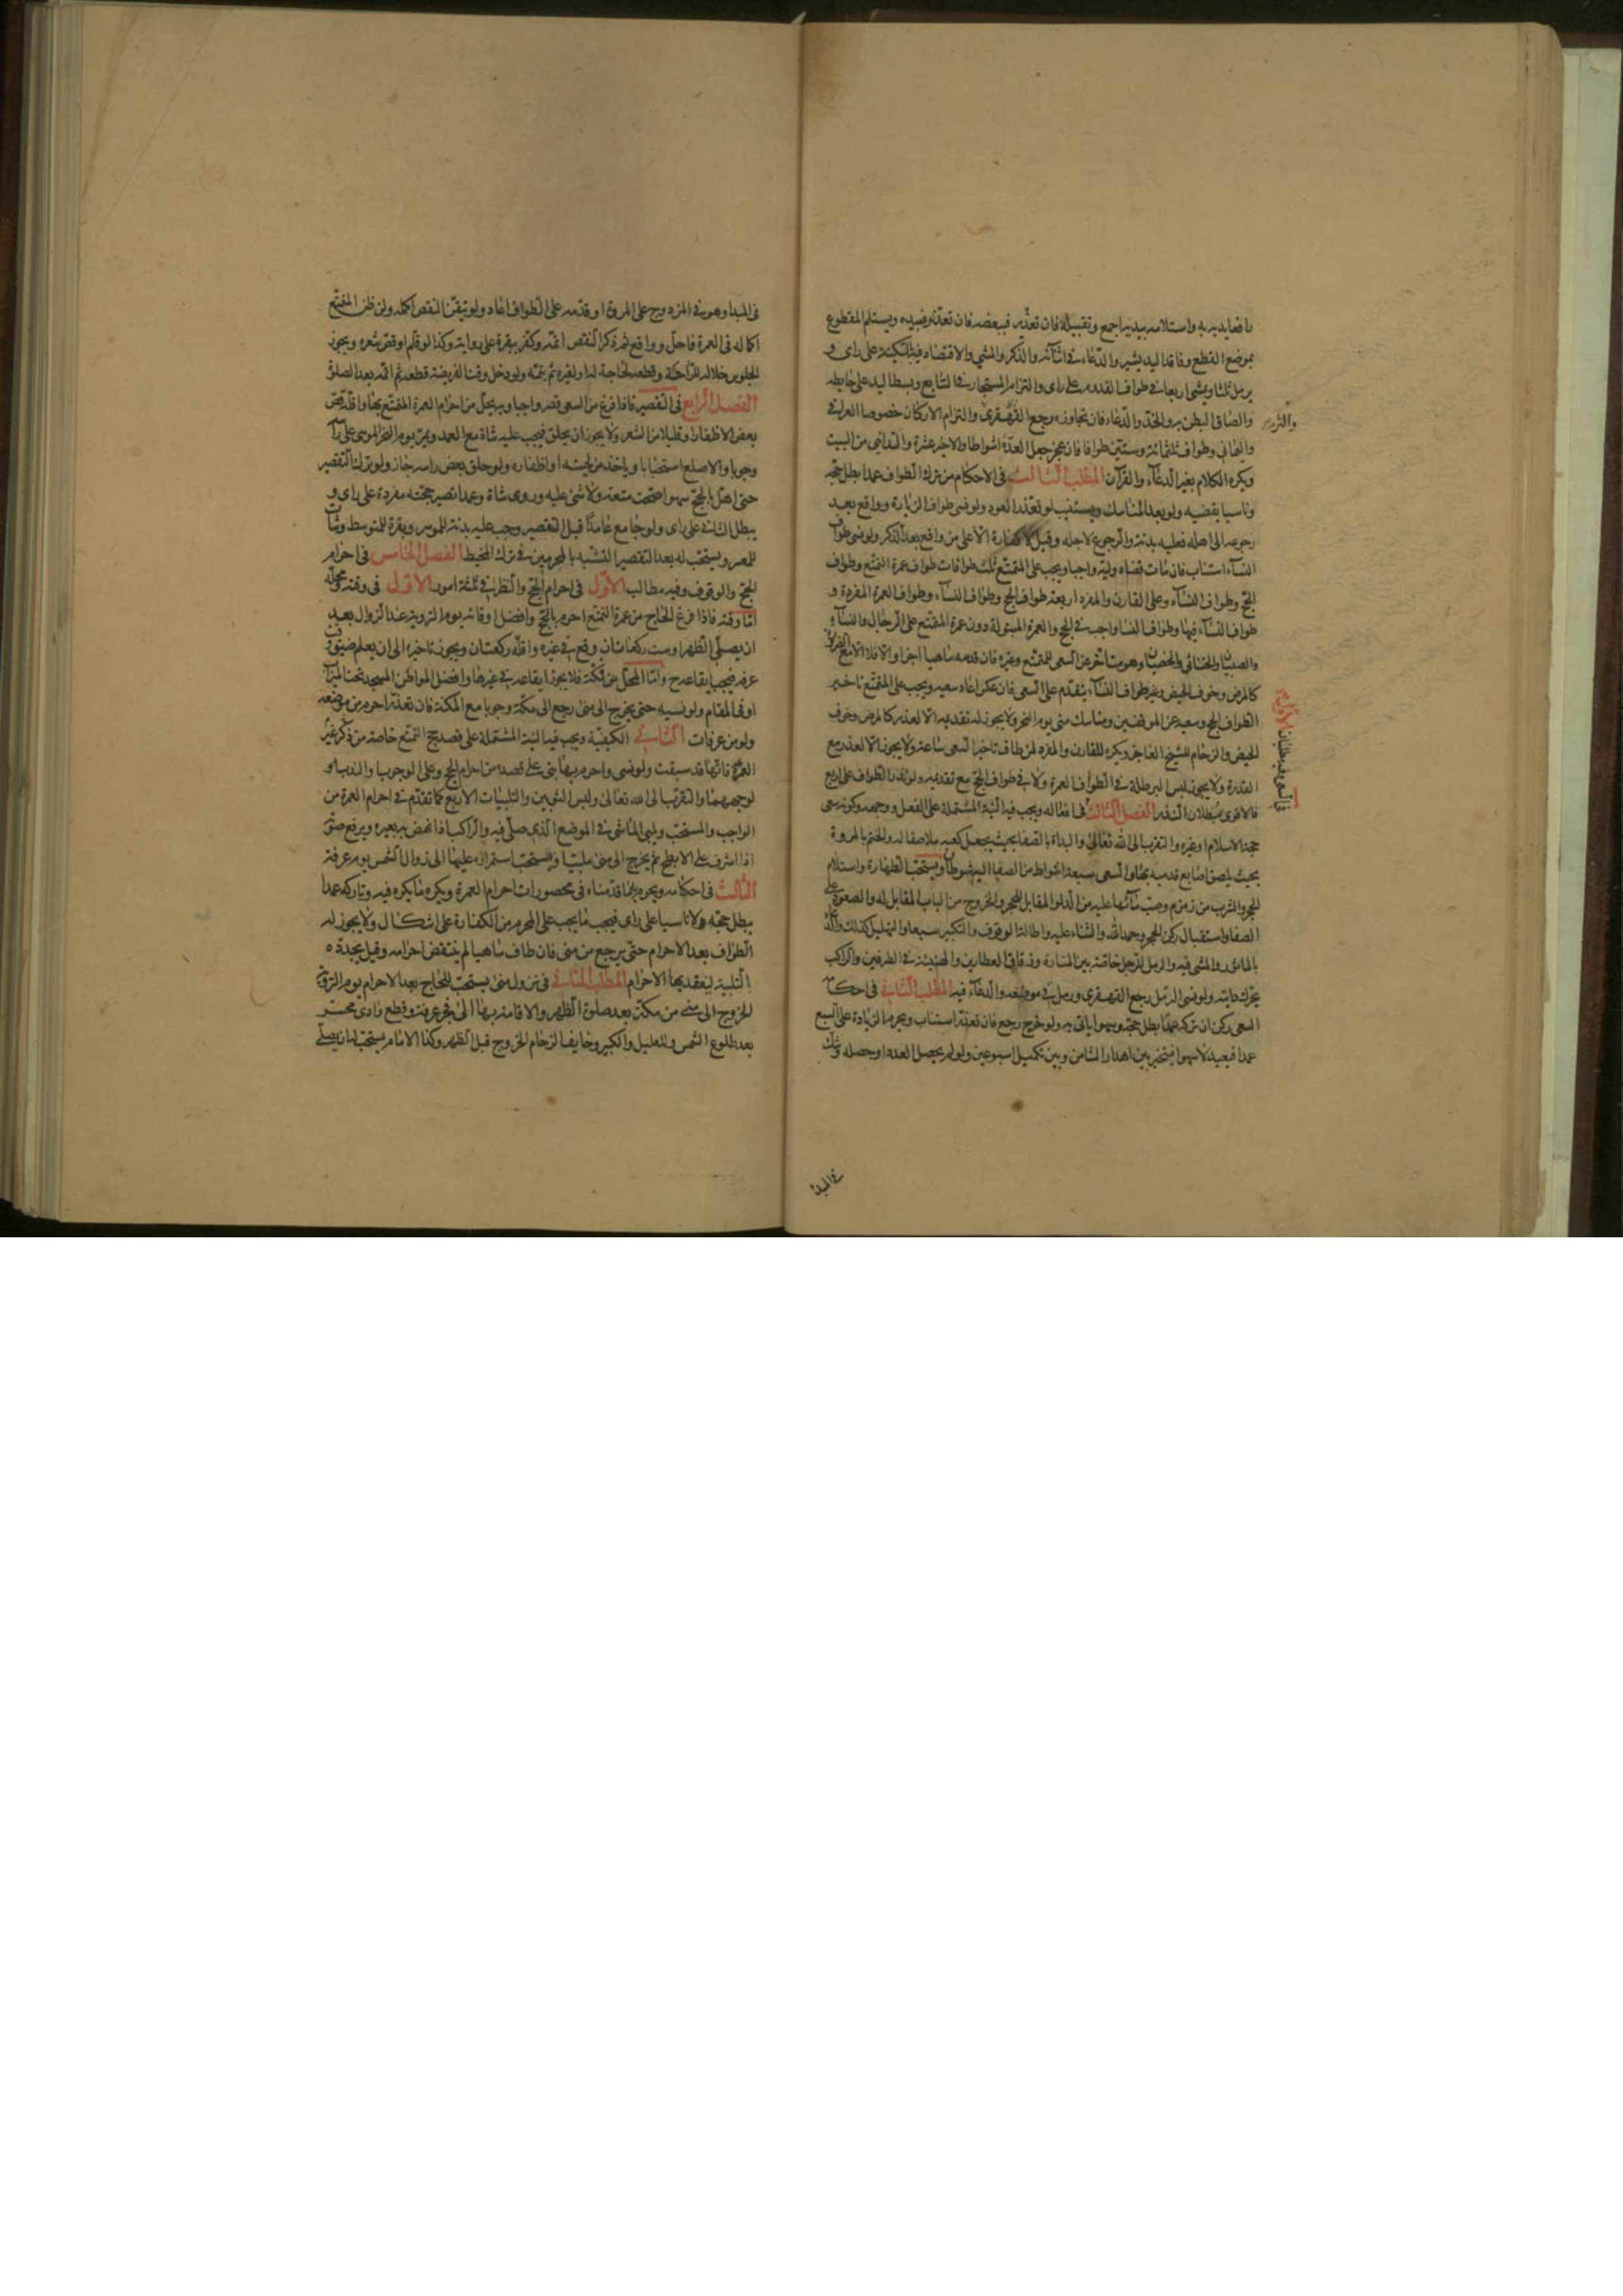 رافعا يديه به واستلامه ببدنه اجمع وتقبيله فان تعذر فببعضه فان تعذر فبيده ويستلم المقطوع
بموضع القطع وفاقد اليد يشير والدعاء في اثنائه والذكر والمشي والاقتصاد فيه بالسكينة على راى و
يرمل ثلثا ويمشى اربعا في طواف القدوم على راى والتزام المستجار في السابع وبسط اليد على حايطه
والصاق البطن به والخد والدعاء فان تجاوزه رجع القهقرى والتزام الاركان خصوصا العراقي
واليماني وطواف ثلثمائة وستين طوافا فان عجز جعل العدة اشواطا والاخير عشرة والتداني من البيت
ويكره الكلام بغير الدعاء والقرآن المطلب الثالث في الاحكام من ترك الطواف عمدا بطل حجه
وناسيا يقضيه ولو بعد المناسك ويستنيب لو تعذر العود ولو نسى طواف الزيارة وواقع بعد
رجوعه الى اهله فعليه بدنة والرجوع لاجله وقيل لا كفارة الا على من واقع بعد الذكر ولو نسى طواف
النساء استناب فان مات قضاه وليه واجبا ويجب على المتمتع ثلث طوافات طواف عمرة التمتع وطواف
الحج وطواف النساء وعلى القارن والمفرد اربعة طواف الحج وطواف النساء وطواف العمرة المفردة و
طواف النساء فيها وطواف النسا واجب في الحج والعمرة المبتولة دون عمرة المتمتع على الرجال والنساء
والصبيان والخناثى والخصيان وهو متاخر عن السعى للمتمتع وغيره فان قدمه ساهيا اجزا والا فلا الا مع الضرورة
كالمرض وخوف الحيض وغير طواف النساء يتقدم على السعى فان عكس اعاد سعيه ويجب على المتمتع تاخير
الطواف للحج وسعيه عن الموقفين ومناسك منى يوم النحر ولا يجوز له تقديمه الا لعذر كالمرض وخوف
الحيض والزحام للشيخ العاجز ويكره للقارن والمفرد لمن طاف تاخير السعى ساعة ولا يجوز الا لعذر مع
القدرة ولا يجوز لبس البرطلة في الطواف العمرة ولا في طواف الحج مع تقديمه ولو نذر الطواف على اربع
فالاقوى بطلان النذر الفصل الثالث في افعاله ويجب فيه النية المشتملة على الفعل ووجهه وكونه سعى
حجة الاسلام او غيره والتقرب الى الله تعالى والبداة بالصفا بحيث يجعل كعبه ملاصقا له والختم بالمروة
بحيث يلصق اصابع قدميه بها والسعى سبعة اشواط من الصفا اليه شوطان ويستحب الطهارة واستلام
الحجر والشرب من زمزم وصب مائها عليه من الدلو المقابل للحجر والخروج من الباب المقابل له والصعود على
الصفا واستقبال ركن الحجر وحمد الله والثناء عليه واطالة الوقوف والتكبير سبعا والتهليل كذلك والدعاء
بالماثور والمشى فيه والرمل للرجل خاصة بين المنارة وزقاق العطارين والهينة في الطرفين والراكب
يحرك دابته ولو نسى الرمل رجع القهقرى ورمل في موضعه والدعاء فيه المطلب الثاني في احكامه
السعى ركن ان تركه عمدا بطل حجه وسهوا ياتى به ولو خرج رجع فان تعذر استناب ويحرم الزيادة على السبع
عمدا فيعيد لا سهوا فيتخير بين اهدار الثامن وبين تكميل اسبوعين ولو لم يحصل العدد او حصله وشك
والتزمه
في السعى وفيه مطلبان الاول
في المبدا
في المبدا وهو في المزدوج على المروة او قدمه على الطواف اعاد ولو تيقن النقص اكمله ولو ظن المتمتع
اكماله في العمرة فاحل وواقع ثم ذكر النقص اتمه وكفر ببقرة على رواية وكذا لو قلم او قص شعره ويجوز
الجلوس خلاله للراحة وقطعه لحاجة له او لغيره ثم يتمه ولو دخل وقت الفريضة قطعه ثم اتمه بعد الصلوة
الفصل الرابع في التقصير فاذا فرغ من السعى قصر واجبا وبه يحل من احرام العمرة المتمتع بها واقله قص
بعض الاظفار او قليلا من الشعر ولا يجوز ان يحلق فيجب عليه شاة مع العمد ويمر يوم النحر الموسى على راسه
وجوبا والاصلع استحبابا وياخذ من لحيته او اظفاره ولو حلق بعض راسه جاز ولو ترك التقصير
حتى اهل بالحج سهوا صحت متعته ولا شئ عليه وروى شاة وعمدا تصير حجته مفردة على راى و
يبطل الثاني على راى ولو جامع عامدا قبل التقصير وجب عليه بدنة للموسر وبقرة للمتوسط وشاة
للمعسر ويستحب له بعد التقصير التشبه بالمحرمين في ترك المخيط الفصل الخامس في احرام
الحج والوقوف وفيه مطالب الاول في احرام الحج والنظر في ثلثة امور الاول في وقته ومحله
اما وقته فاذا فرغ الحاج من عمرة التمتع احرم بالحج وافضل اوقاته يوم التروية عند الزوال بعد
ان يصلى الظهر او ست ركعات ان وقع في غيره واقله ركعتان ويجوز تاخيره الى ان يعلم ضيق وقت
عرفه فيجب ايقاعه ح واما المحل من مكة فلا يجوز ايقاعه في غيرها وافضل المواطن المسجد تحت الميزاب
او في المقام ولو نسيه حتى يخرج الى منى رجع الى مكة وجوبا مع المكنة فان تعذر احرم من موضعه
ولو من عرفات الثاني الكيفية ويجب فيه النية المشتملة على قصد حج التمتع خاصة من ذكر غير
العمرة فانها قد سبقت ولو نسى واحرم بها بنى على قصده من احرام الحج وعلى الوجوب او الندب او
لوجههما والتقرب الى الله تعالى ولبس الثوبين والتلبيات الاربع كما تقدم في احرام العمرة من
الواجب والمستحب ويلبى الماشى في الموضع الذى صلى فيه والراكب اذا نهض به بعيره ويرفع صوته
اذا اشرف على الابطح ثم يخرج الى منى ملبيا ويستحب استمراره عليها الى زوال الشمس يوم عرفة
الثالث في احكامه ويحرم به ما قدمناه في محصورات احرام العمرة ويكره ما يكره فيه وتاركه عمدا
يبطل حجه ولا ناسيا على راى فيجب ما يجب على المحرم من الكفارة على اشكال ولا يجوز له
الطواف بعد الاحرام حتى يرجع من منى فان طاف ساهيا لم ينتقض احرامه وقيل يجدد ه
التلبية ليعقد بها الاحرام المطلب الثاني في نزول منى يستحب للحاج بعد الاحرام يوم التروية
الخروج الى منى من مكة بعد صلوة الظهر والاقامة بها الى فجر عرفة وقطع وادى محسر
بعد طلوع الشمس وللعليل والكبير وخايف الزحام الخروج قبل الظهر وكذا الامام يستحب له ان يصلى